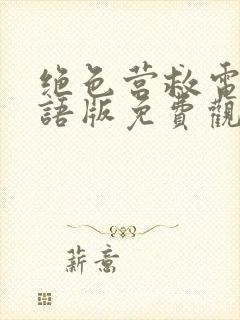 绝色营救電
語版免費觀
薪意